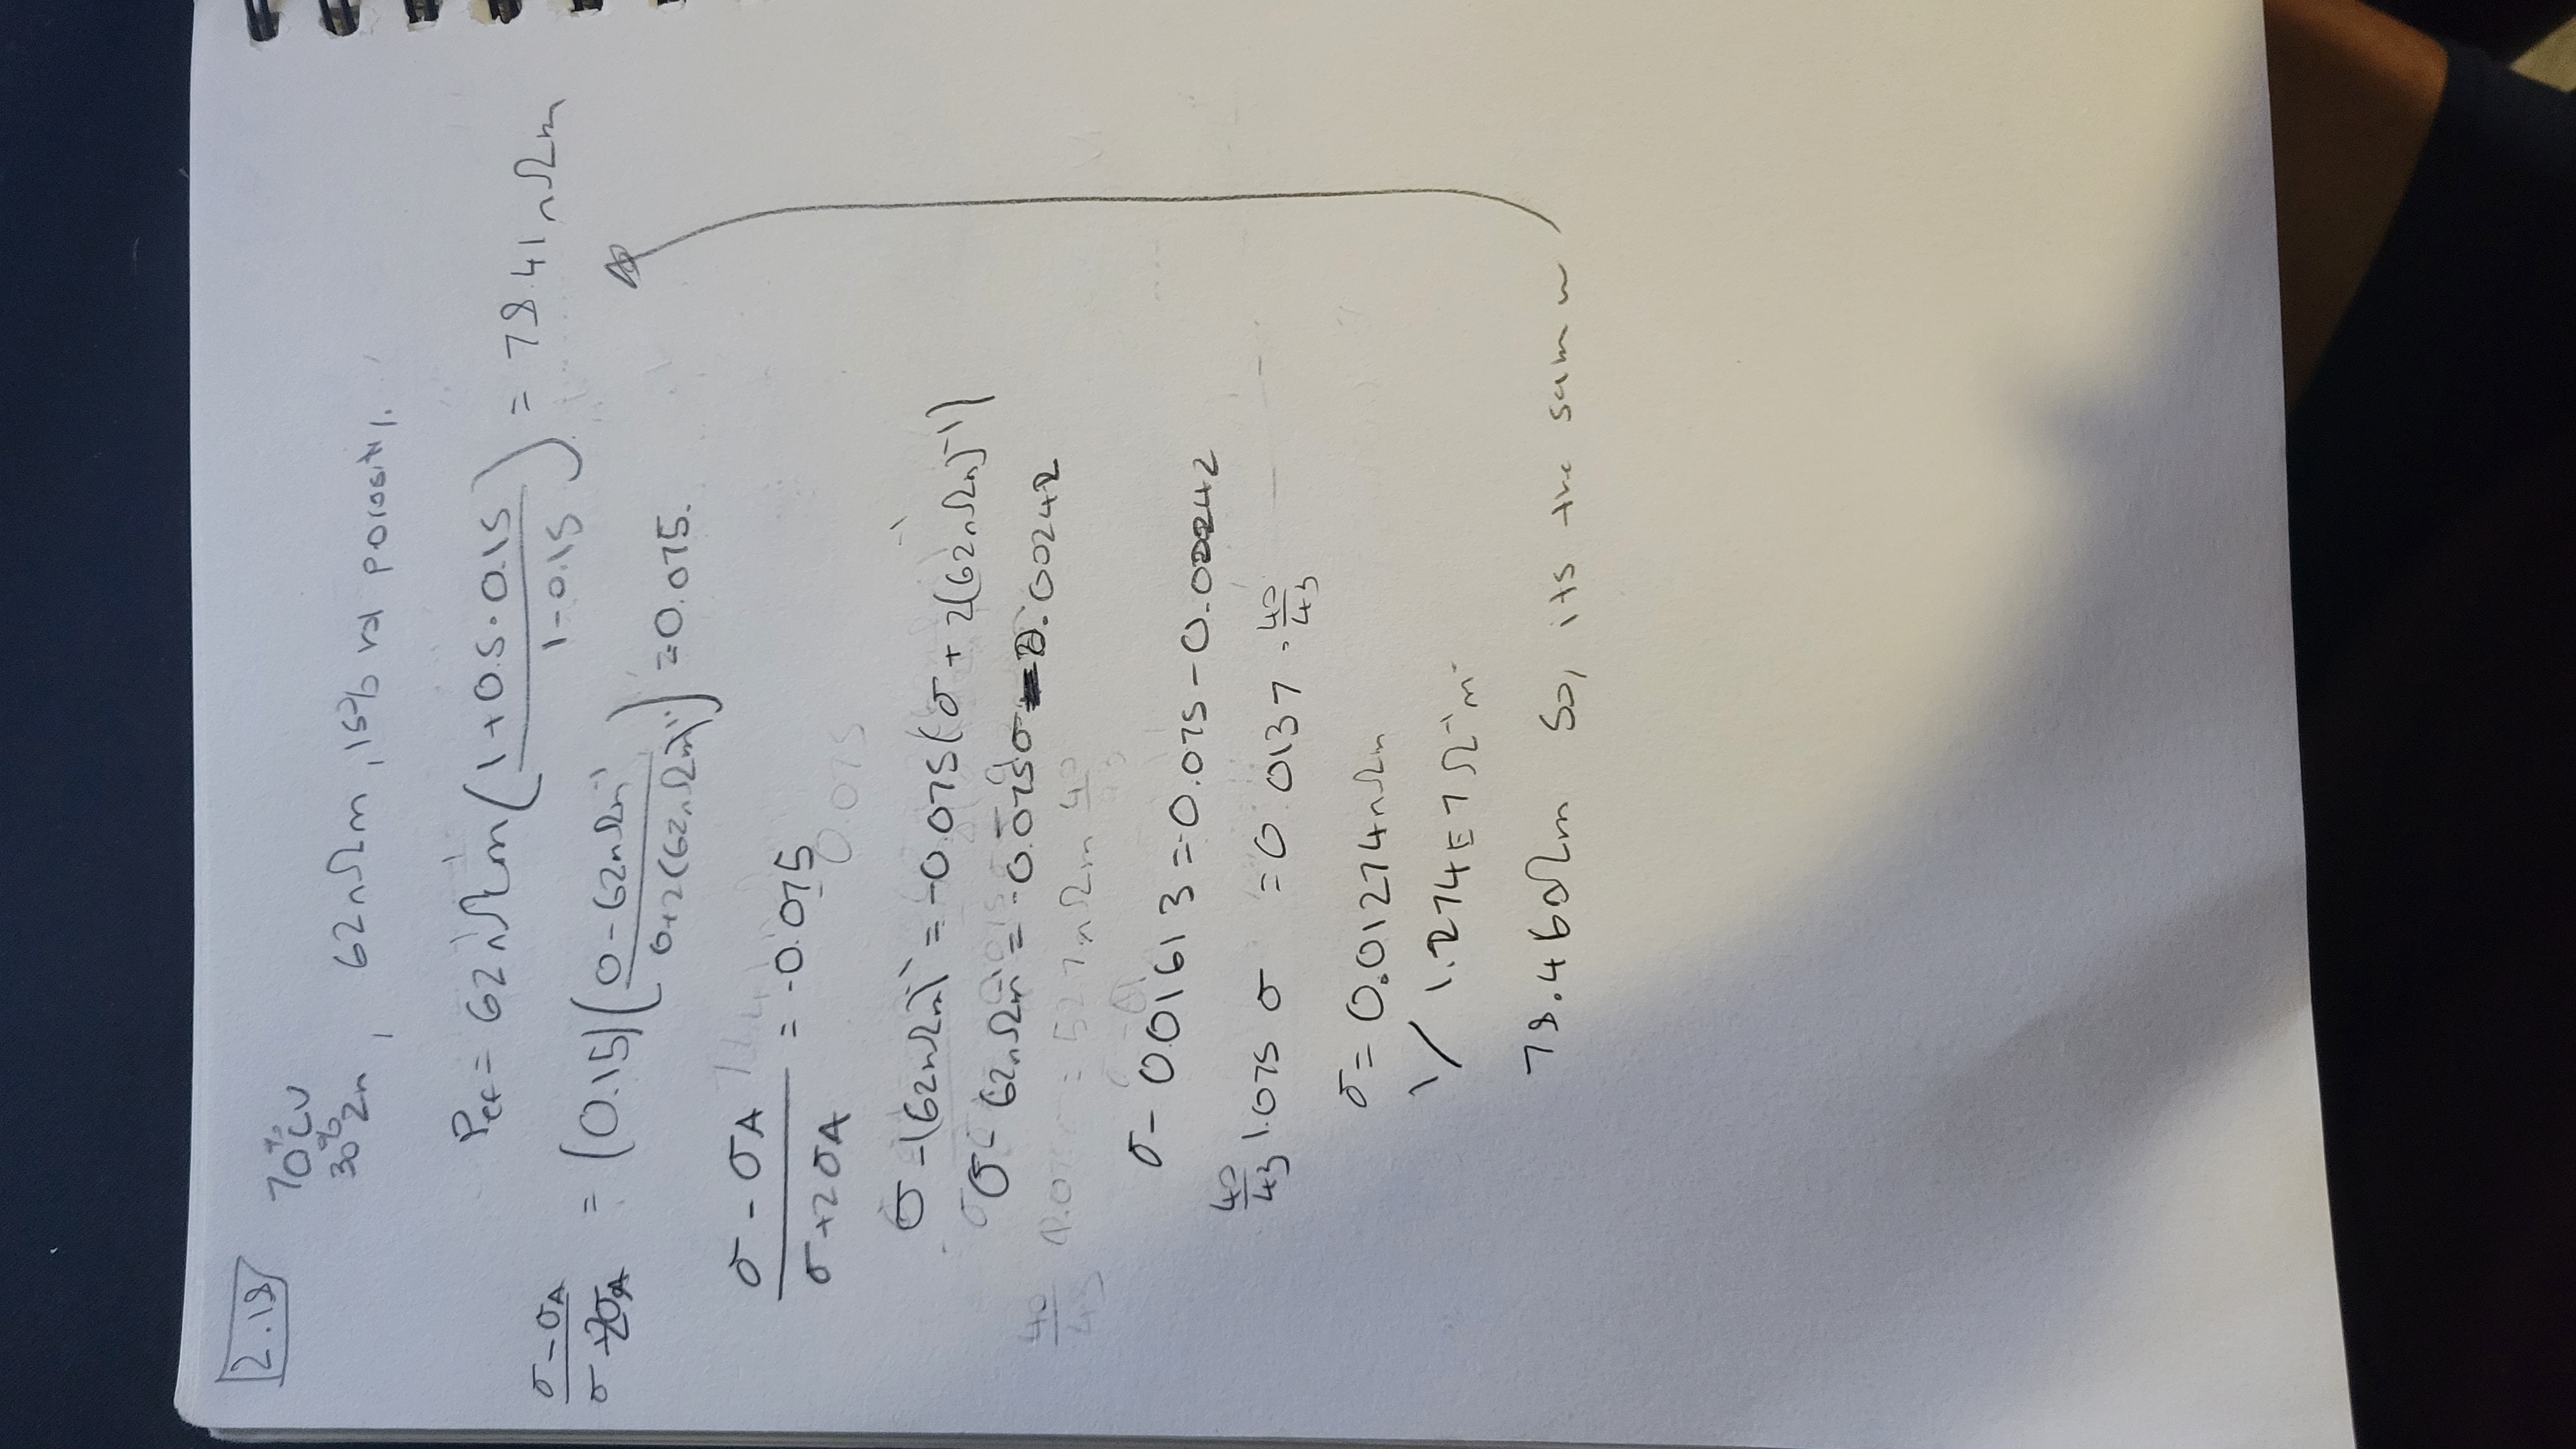 2.18
70% Cu
30% Zn, 62nΩm, 15% vol porosity.
Pef = 62nΩm(1+0.5·0.15 / 1-0.15) = 78.41nΩm
σ-σA / σ+2σA = (0.15)(0-62nΩm⁻¹ / 0+2(62nΩm)⁻¹) = 0.075.
σ-σA / σ+2σA = -0.075
0.075
σ-(62nΩm)⁻¹ = -0.075(σ+2(62nΩm)⁻¹)
σ-62nΩm⁻¹ = -0.075σ-0.00242
40/43 = 52.7nΩm 40/43
σ-0.01613 = -0.075-0.00242
40/43 1.075 σ = 0.0137 · 40/43
σ = 0.01274nΩm
1/ 1.274E7 Ω⁻¹m⁻
78.46nΩm So, its the same